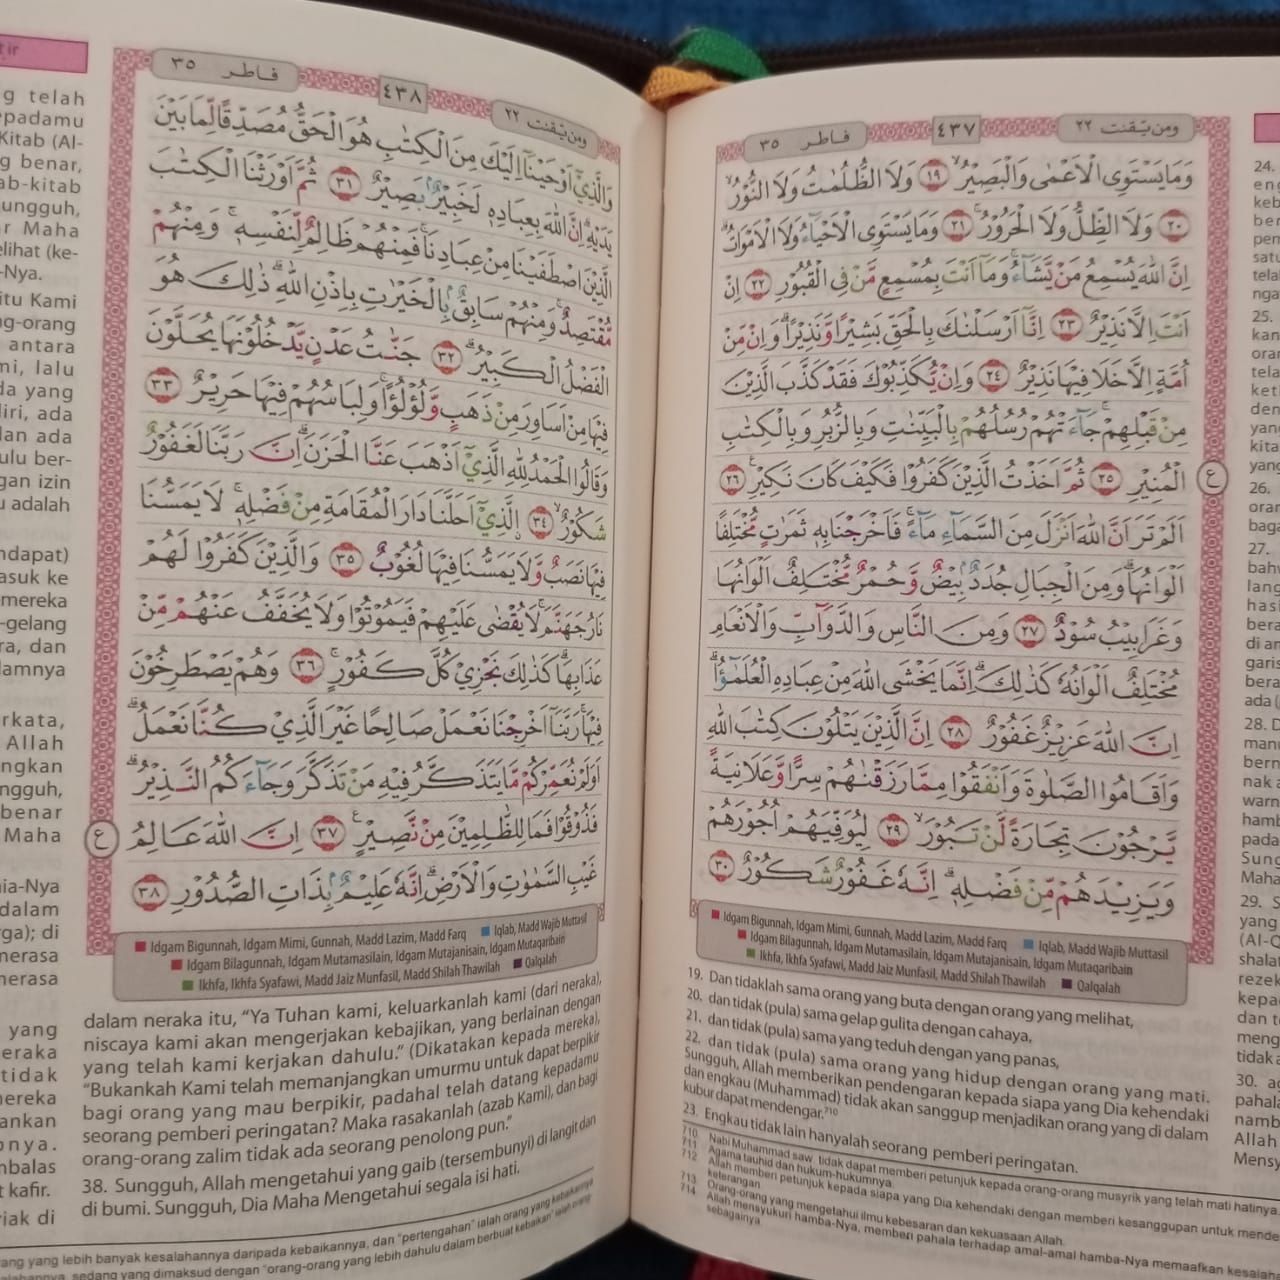 ومن يقنت ٢٢
٤٣٧
فاطر ٣٥
وَمَا يَسْتَوِى الْاَعْمٰى وَالْبَصِيْرُۙ ١٩ وَلَا الظُّلُمٰتُ وَلَا النُّوْرُۙ
٢٠ وَلَا الظِّلُّ وَلَا الْحَرُوْرُۚ ٢١ وَمَا يَسْتَوِى الْاَحْيَاۤءُ وَلَا الْاَمْوَاتُۗ
اِنَّ اللّٰهَ يُسْمِعُ مَنْ يَّشَاۤءُۚ وَمَآ اَنْتَ بِمُسْمِعٍ مَّنْ فِى الْقُبُوْرِ ٢٢ اِنْ
اَنْتَ اِلَّا نَذِيْرٌ ٢٣ اِنَّآ اَرْسَلْنٰكَ بِالْحَقِّ بَشِيْرًا وَّنَذِيْرًاۗ وَاِنْ مِّنْ
اُمَّةٍ اِلَّا خَلَا فِيْهَا نَذِيْرٌ ٢٤ وَاِنْ يُّكَذِّبُوْكَ فَقَدْ كَذَّبَ الَّذِيْنَ
مِنْ قَبْلِهِمْۚ جَاۤءَتْهُمْ رُسُلُهُمْ بِالْبَيِّنٰتِ وَبِالزُّبُرِ وَبِالْكِتٰبِ
الْمُنِيْرِ ٢٥ ثُمَّ اَخَذْتُ الَّذِيْنَ كَفَرُوْا فَكَيْفَ كَانَ نَكِيْرِ ࣖ ٢٦
ع
اَلَمْ تَرَ اَنَّ اللّٰهَ اَنْزَلَ مِنَ السَّمَاۤءِ مَاۤءًۚ فَاَخْرَجْنَا بِهٖ ثَمَرٰتٍ مُّخْتَلِفًا
اَلْوَانُهَاۗ وَمِنَ الْجِبَالِ جُدَدٌۢ بِيْضٌ وَّحُمْرٌ مُّخْتَلِفٌ اَلْوَانُهَا
وَغَرَابِيْبُ سُوْدٌ ٢٧ وَمِنَ النَّاسِ وَالدَّوَاۤبِّ وَالْاَنْعَامِ
مُخْتَلِفٌ اَلْوَانُهٗ كَذٰلِكَۗ اِنَّمَا يَخْشَى اللّٰهَ مِنْ عِبَادِهِ الْعُلَمٰۤؤُاۗ
اِنَّ اللّٰهَ عَزِيْزٌ غَفُوْرٌ ٢٨ اِنَّ الَّذِيْنَ يَتْلُوْنَ كِتٰبَ اللّٰهِ
وَاَقَامُوا الصَّلٰوةَ وَاَنْفَقُوْا مِمَّا رَزَقْنٰهُمْ سِرًّا وَّعَلَانِيَةً
يَّرْجُوْنَ تِجَارَةً لَّنْ تَبُوْرَۙ ٢٩ لِيُوَفِّيَهُمْ اُجُوْرَهُمْ
وَيَزِيْدَهُمْ مِّنْ فَضْلِهٖۗ اِنَّهٗ غَفُوْرٌ شَكُوْرٌ ٣٠
Idgam Bigunnah, Idgam Mimi, Gunnah, Madd Lazim, Madd Farq Iqlab, Madd Wajib Muttasil
Idgam Bilagunnah, Idgam Mutamasilain, Idgam Mutajanisain, Idgam Mutaqaribain
Ikhfa, Ikhfa Syafawi, Madd Jaiz Munfasil, Madd Shilah Thawilah Qalqalah
19. Dan tidaklah sama orang yang buta dengan orang yang melihat,
20. dan tidak (pula) sama gelap gulita dengan cahaya,
21. dan tidak (pula) sama yang teduh dengan yang panas,
22. dan tidak (pula) sama orang yang hidup dengan orang yang mati.
Sungguh, Allah memberikan pendengaran kepada siapa yang Dia kehendaki
dan engkau (Muhammad) tidak akan sanggup menjadikan orang yang di dalam
kubur dapat mendengar.710
23. Engkau tidak lain hanyalah seorang pemberi peringatan.
710 Nabi Muhammad saw. tidak dapat memberi petunjuk kepada orang-orang musyrik yang telah mati hatinya.
711 Agama tauhid dan hukum-hukumnya.
712 Allah memberi petunjuk kepada siapa yang Dia kehendaki dengan memberi kesanggupan untuk
keterangan
713 Orang-orang yang mengetahui ilmu kebesaran dan kekuasaan Allah.
714 Allah mensyukuri hamba-Nya, memberi pahala terhadap amal-amal hamba-Nya memaafkan
sebagainya
ومن يقنت ٢٢
٤٣٨
فاطر ٣٥
وَالَّذِيْٓ اَوْحَيْنَآ اِلَيْكَ مِنَ الْكِتٰبِ هُوَ الْحَقُّ مُصَدِّقًا لِّمَا بَيْنَ
يَدَيْهِۗ اِنَّ اللّٰهَ بِعِبَادِهٖ لَخَبِيْرٌۢ بَصِيْرٌ ٣١ ثُمَّ اَوْرَثْنَا الْكِتٰبَ
الَّذِيْنَ اصْطَفَيْنَا مِنْ عِبَادِنَاۚ فَمِنْهُمْ ظَالِمٌ لِّنَفْسِهٖۚ وَمِنْهُمْ
مُّقْتَصِدٌۚ وَمِنْهُمْ سَابِقٌۢ بِالْخَيْرٰتِ بِاِذْنِ اللّٰهِۗ ذٰلِكَ هُوَ
الْفَضْلُ الْكَبِيْرُۗ ٣٢ جَنّٰتُ عَدْنٍ يَّدْخُلُوْنَهَا يُحَلَّوْنَ
فِيْهَا مِنْ اَسَاوِرَ مِنْ ذَهَبٍ وَّلُؤْلُؤًاۚ وَلِبَاسُهُمْ فِيْهَا حَرِيْرٌ ٣٣
وَقَالُوا الْحَمْدُ لِلّٰهِ الَّذِيْٓ اَذْهَبَ عَنَّا الْحَزَنَۗ اِنَّ رَبَّنَا لَغَفُوْرٌ
شَكُوْرٌۙ ٣٤ ۨالَّذِيْٓ اَحَلَّنَا دَارَ الْمُقَامَةِ مِنْ فَضْلِهٖۚ لَا يَمَسُّنَا
فِيْهَا نَصَبٌ وَّلَا يَمَسُّنَا فِيْهَا لُغُوْبٌ ٣٥ وَالَّذِيْنَ كَفَرُوْا لَهُمْ
نَارُ جَهَنَّمَۚ لَا يُقْضٰى عَلَيْهِمْ فَيَمُوْتُوْا وَلَا يُخَفَّفُ عَنْهُمْ مِّنْ
عَذَابِهَاۗ كَذٰلِكَ نَجْزِيْ كُلَّ كَفُوْرٍۚ ٣٦ وَهُمْ يَصْطَرِخُوْنَ
فِيْهَاۚ رَبَّنَآ اَخْرِجْنَا نَعْمَلْ صَالِحًا غَيْرَ الَّذِيْ كُنَّا نَعْمَلُۗ
اَوَلَمْ نُعَمِّرْكُمْ مَّا يَتَذَكَّرُ فِيْهِ مَنْ تَذَكَّرَ وَجَاۤءَكُمُ النَّذِيْرُۗ
فَذُوْقُوْا فَمَا لِلظّٰلِمِيْنَ مِنْ نَّصِيْرٍ ࣖ ٣٧ اِنَّ اللّٰهَ عَالِمُ
ع
غَيْبِ السَّمٰوٰتِ وَالْاَرْضِۗ اِنَّهٗ عَلِيْمٌۢ بِذَاتِ الصُّدُوْرِ ٣٨
Idgam Bigunnah, Idgam Mimi, Gunnah, Madd Lazim, Madd Farq Iqlab, Madd Wajib Muttasil
Idgam Bilagunnah, Idgam Mutamasilain, Idgam Mutajanisain, Idgam Mutaqaribain
Ikhfa, Ikhfa Syafawi, Madd Jaiz Munfasil, Madd Shilah Thawilah Qalqalah
dalam neraka itu, “Ya Tuhan kami, keluarkanlah kami (dari neraka),
niscaya kami akan mengerjakan kebajikan, yang berlainan dengan
yang telah kami kerjakan dahulu.” (Dikatakan kepada mereka),
“Bukankah Kami telah memanjangkan umurmu untuk dapat berpikir
bagi orang yang mau berpikir, padahal telah datang kepadamu
seorang pemberi peringatan? Maka rasakanlah (azab Kami), dan bagi
orang-orang zalim tidak ada seorang penolong pun.”
38. Sungguh, Allah mengetahui yang gaib (tersembunyi) di langit dan
di bumi. Sungguh, Dia Maha Mengetahui segala isi hati.
yang lebih banyak kesalahannya daripada kebaikannya, dan “pertengahan” ialah orang yang kebaikannya
sedang yang dimaksud dengan “orang-orang yang lebih dahulu dalam berbuat kebaikan” ialah orang-